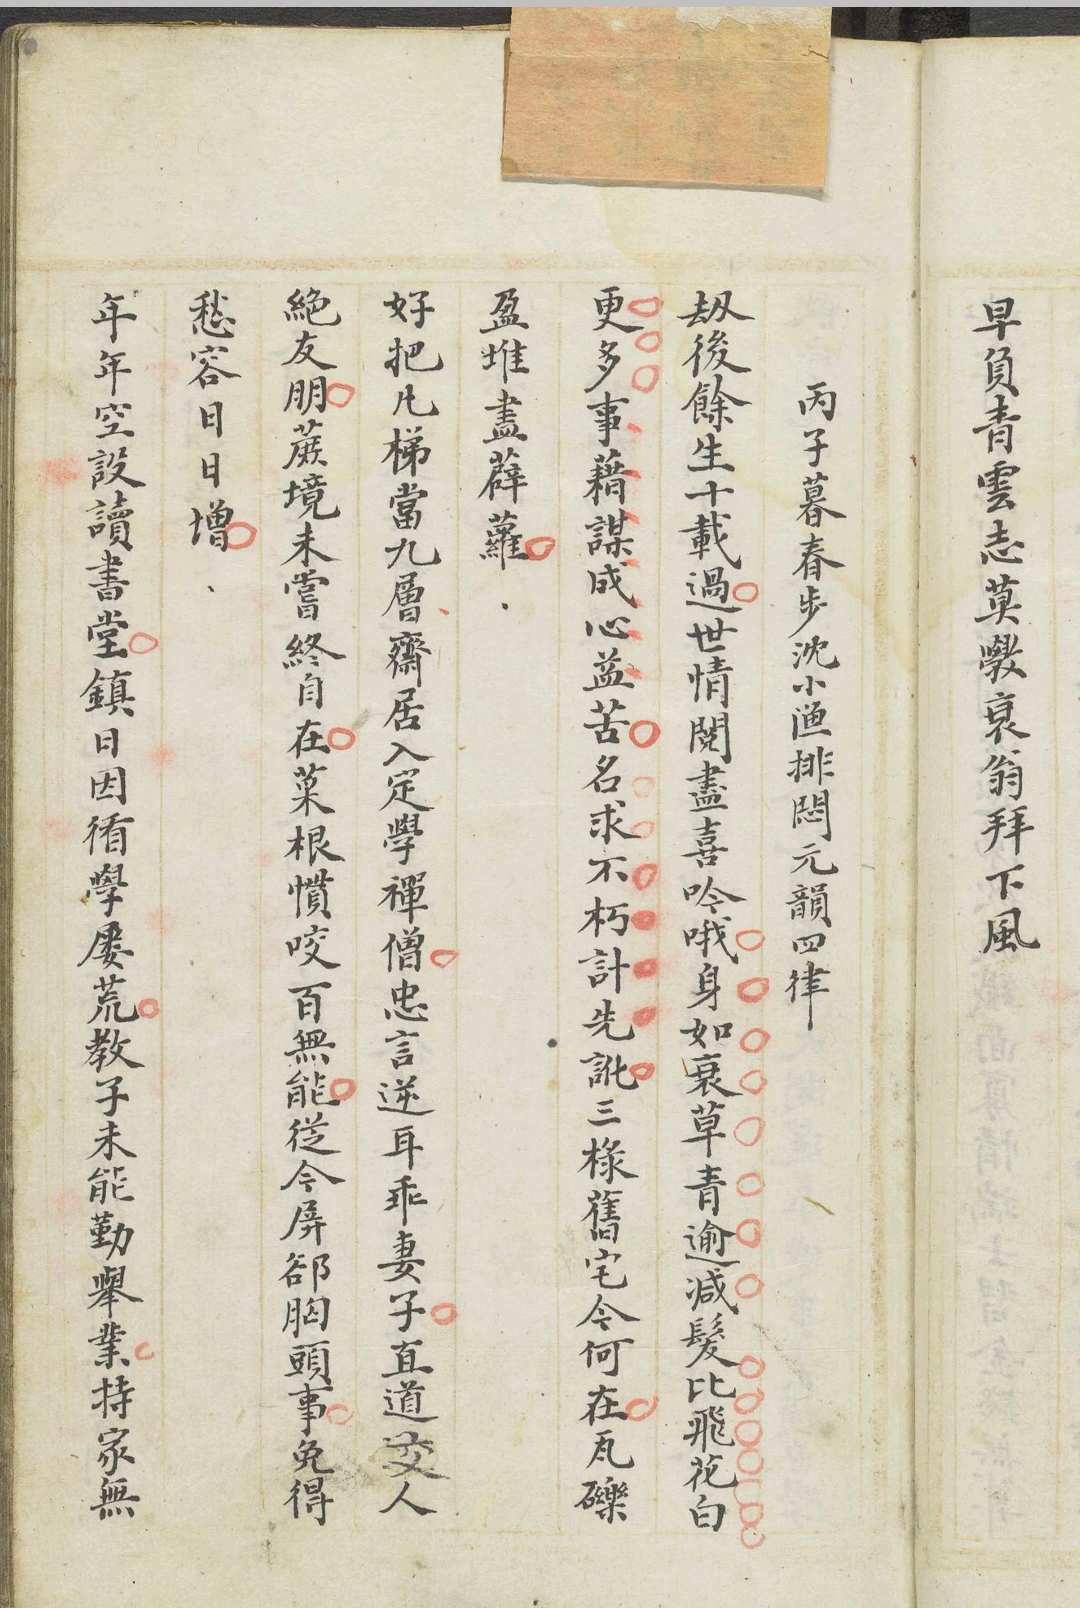 早負青雲志莫嗤衰翁拜下風
丙子暮春步沈小漁排悶元韻四律
劫後餘生十載過世情閱盡喜吟哦身如衰草青逾減髮比飛花白
更多事藉謀成心益苦名求不朽計先訛三椽舊宅今何在瓦礫
盈堆盡薜蘿
好把凡梯當九層齋居入定學禪僧忠言逆耳乖妻子直道交人
絕友朋蔗境未嘗終自在菜根慣咬百無能從今屏卻胸頭事免得
愁容日日增
年年空設讀書堂鎮日因循學屢荒教子未能勤舉業持家無